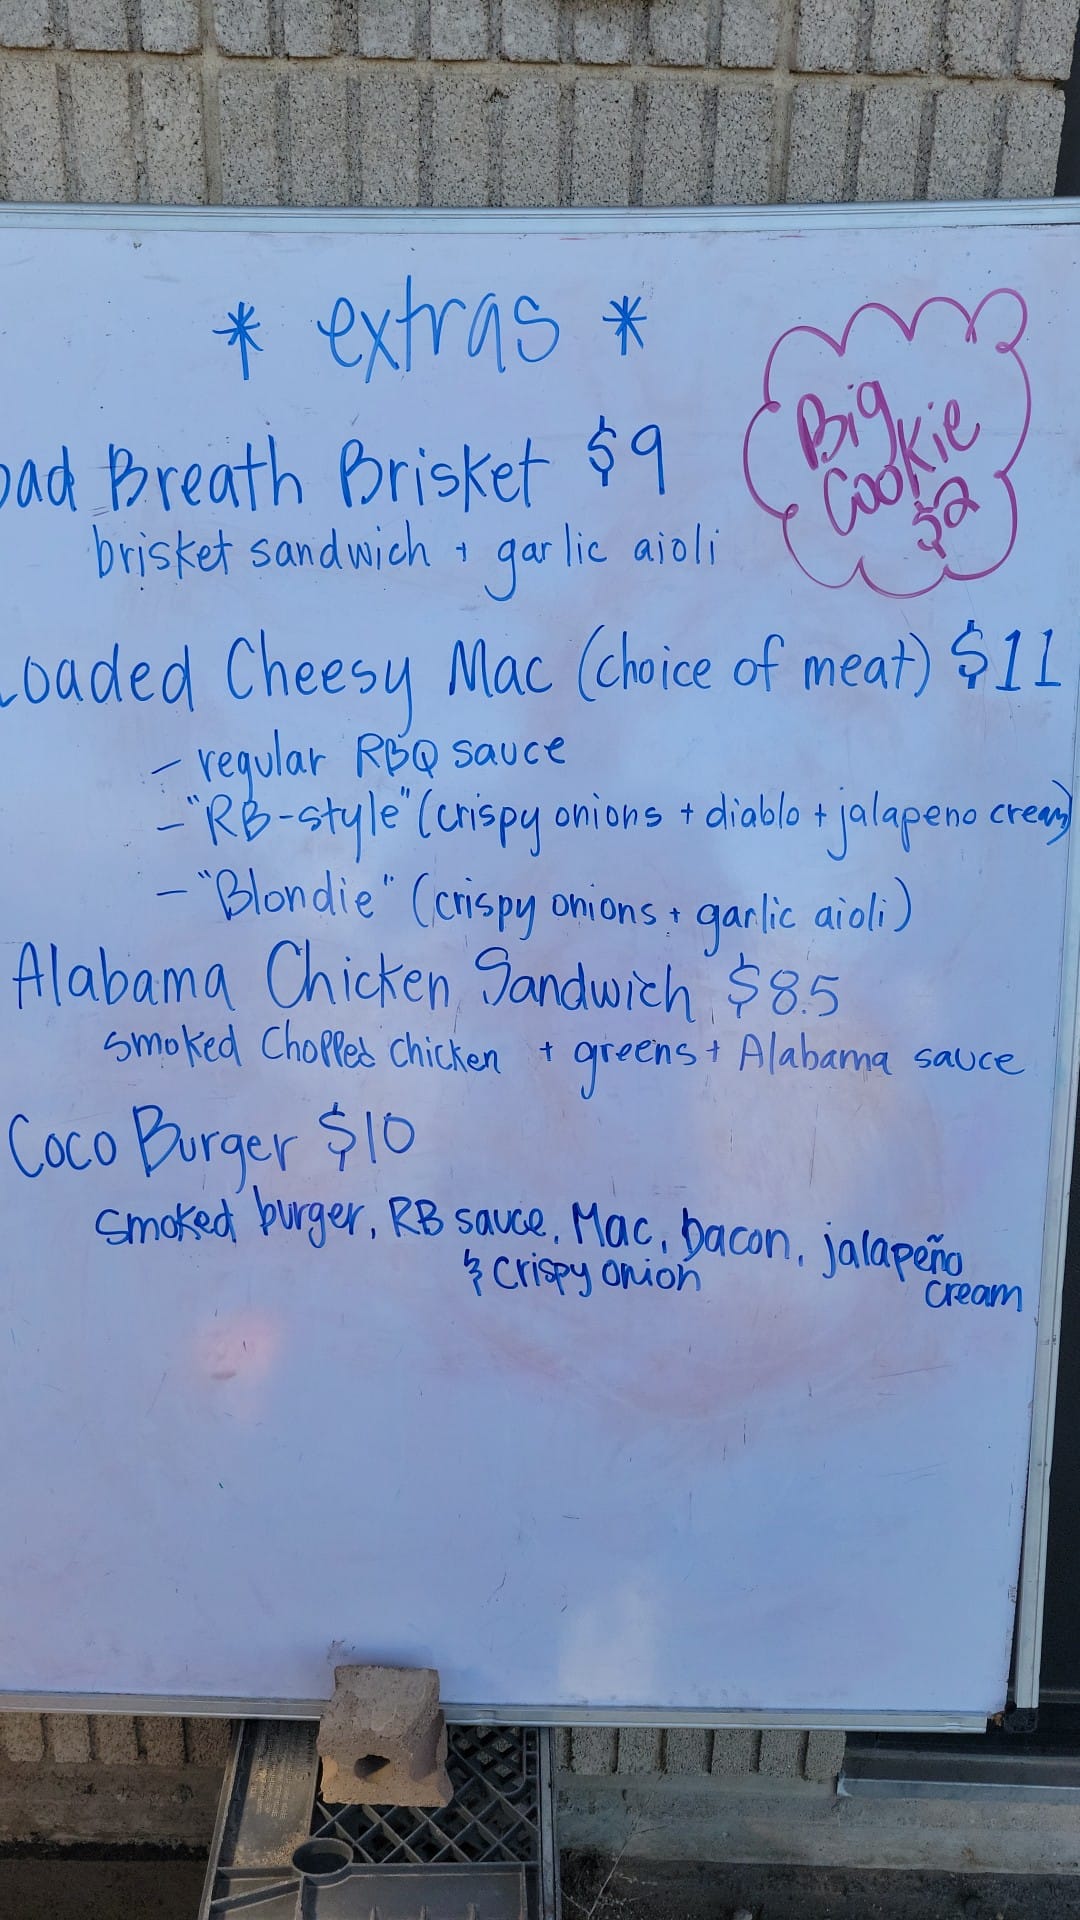 * extras *
Big
Cookie
$2
Bad Breath Brisket $9
brisket sandwich + garlic aioli
Loaded Cheesy Mac (choice of meat) $11
- regular RBQ sauce
- "RB-style" (crispy onions + diablo + jalapeno cream)
- "Blondie" (crispy onions + garlic aioli)
Alabama Chicken Sandwich $8.5
smoked Chopped chicken + greens + Alabama sauce
Coco Burger $10
smoked burger, RB sauce, Mac, bacon, jalapeño
& crispy onion cream